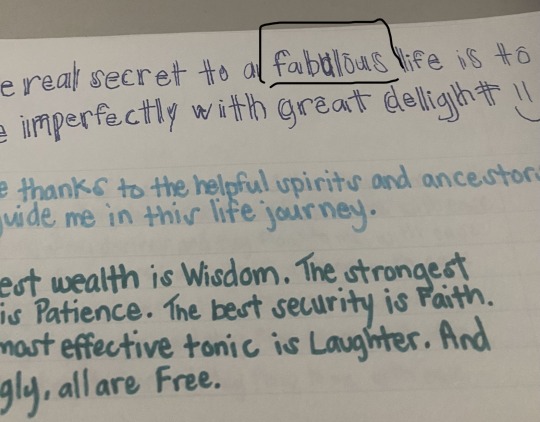 e real secret to a fabulous life is to
e imperfectly with great delight !!
e thanks to the helpful spirits and ancestors
uide me in this life journey.
est wealth is Wisdom. The strongest
is Patience. The best security is Faith.
most effective tonic is Laughter. And
gly, all are Free.